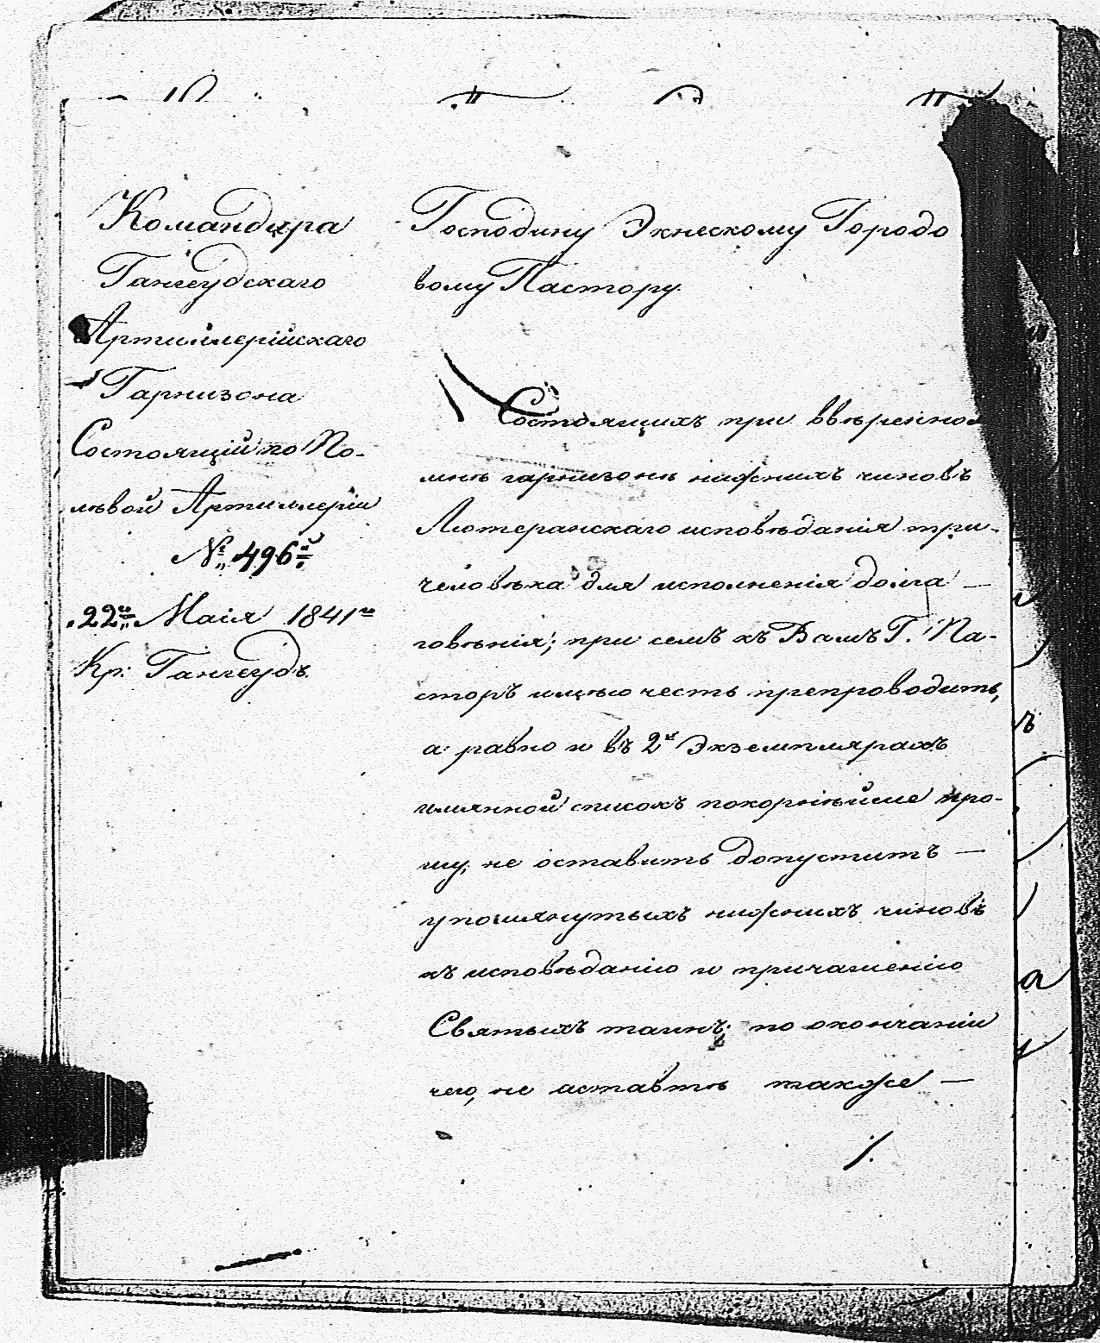 Командира
Гангеудскаго
Артиллерійскаго
Гарнизона
Состоящій по По-
левой Артиллеріи
№ 496й
22го Маія 1841го
Кр: Гангеудъ.
Господину Экнескому Городо
вому Пастору.
Состоящихъ при ввѣренном
мнѣ гарнизонѣ нижнихъ чиновъ
Лютеранскаго исповѣданія три
человѣка для исполненія долга —
говѣнія; при семъ къ Вамъ Г. Па-
сторъ имѣю честь препроводить,
а равно и въ 2хъ Экземплярахъ
имянной списокъ покорнѣйше про-
шу, не оставить допустить —
упомянутыхъ нижнихъ чиновъ
къ исповѣданію и причащенію
Святыхъ таинъ; по окончаніи
чего, не аставте также —